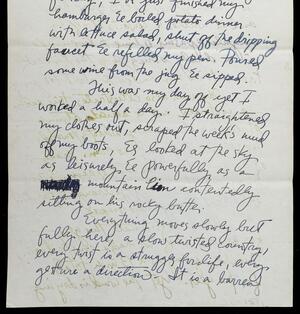 I've just finished my
hamburger & boiled potato dinner
with lettuce salad, shut off the dripping
faucet & refilled my pen. Poured
some wine from the jug & sipped.
This was my day off yet I
worked a half a day. I straightened
my clothes out, scraped the week's mud
off my boots. & looked at the sky
as leisurely & powerfully as a
mountain lion contentedly
sitting on his rocky butte.
Everything moves slowly but
fully here, a slow twisted country,
every twist is a struggle for life, every
gesture a direction. It is a barren